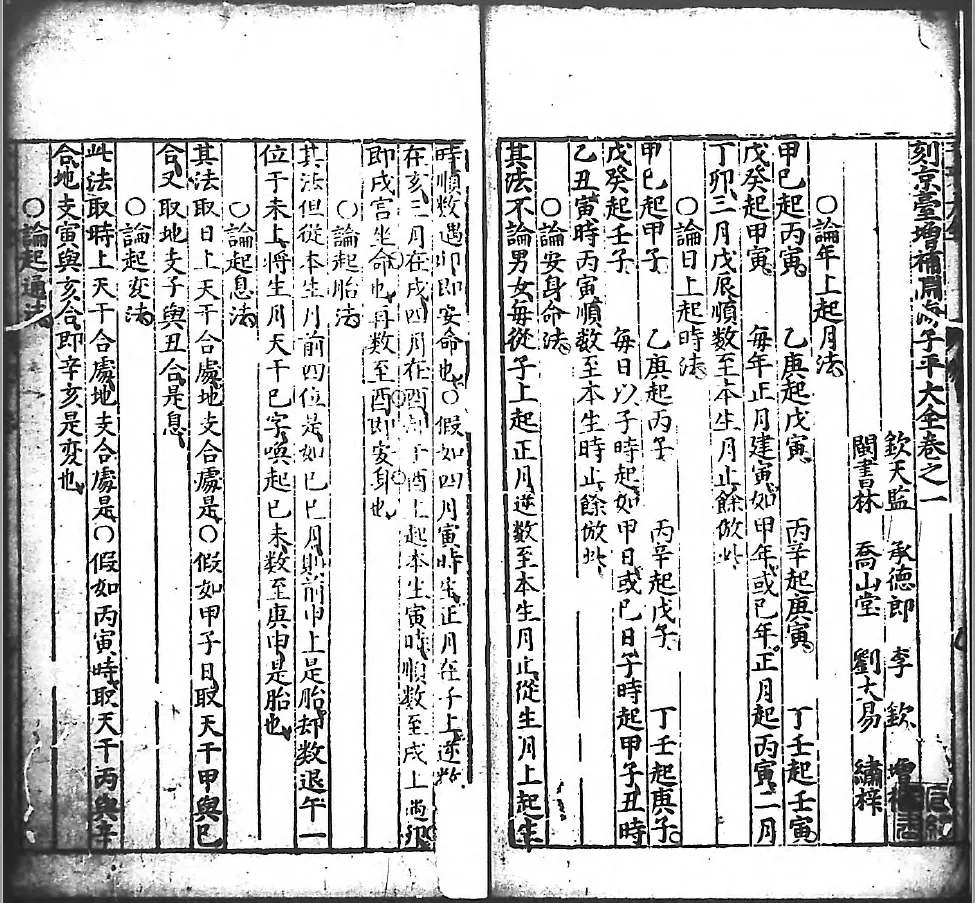 刻京臺增補淵海子平大全卷之一
欽天監　承德郎　李　欽　增補
閩書林　喬山堂　劉大易　繡梓
○論年上起月法
甲己起丙寅　乙庚起戊寅　丙辛起庚寅　丁壬起壬寅
戊癸起甲寅　每年正月建寅如甲年或己年正月起丙寅二月
丁卯三月戊辰順數至本生月止餘倣此
○論日上起時法
甲己起甲子　乙庚起丙子　丙辛起戊子　丁壬起庚子
戊癸起壬子　每日以子時起如甲日或己日子時起甲子丑時
乙丑寅時丙寅順數至本生時止餘倣此
○論安身命法
其法不論男女每從子上起正月逆数至本生月止從生月上起生
時順数遇卯即安命也○假如四月寅時生正月在子上逆数
在亥三月在戌四月在酉却于酉上起本生寅時順数至戌上遇卯
即戌宮坐命也再数至酉即安身也
○論起胎法
其法但從本生月前四位是如己巳月則前申上是胎却数退午一
位于未上將生月天干己字喚起己未数至庚申是胎也
○論起息法
其法取日上天干合處地支合處是○假如甲子日取天干甲與己
合又取地支子與丑合是息
○論起变法
此法取時上天干合處地支合處是○假如丙寅時取天干丙與辛
合地支寅與亥合即辛亥是变也
○論起通法